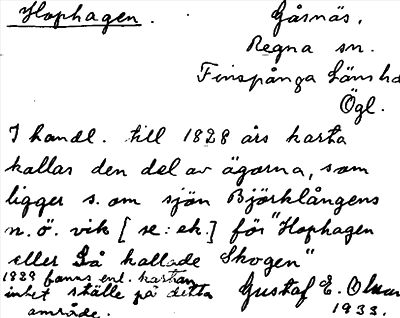 Hophagen.
Gåsnäs,
Regna sn.
Finspånga Länshd
Ögl.
I handl. till 1828 års karta
kallas den del av ägorna, som
ligger s. om sjön Björklångens
n. ö. vik [se: ek.] för "Hophagen
eller Så kallade Skogen"
1828 fanns enl. kartan
intet ställe på detta
område.
Gustaf E. Olsson
1933.